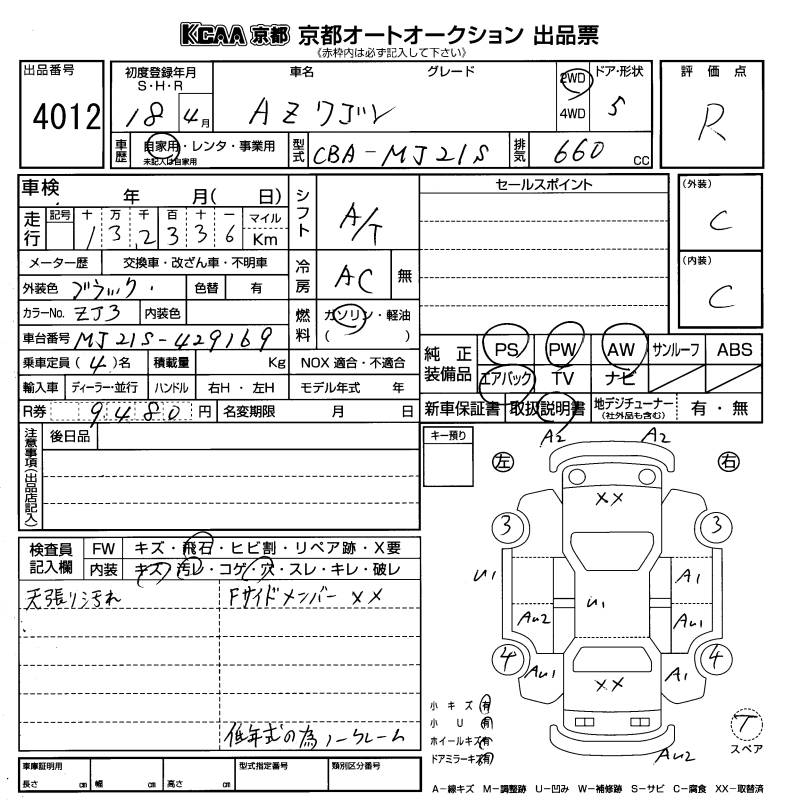 KCAA 京都 京都オートオークション 出品票
《赤枠内は必ず記入して下さい》
出品番号 4012
初度登録年月 S・H・R 18 4月
車名 グレード AZワゴン
2WD 4WD
ドア・形状 5
評価点 R
車歴 自家用・レンタ・事業用 未記入は自家用
型式 CBA-MJ21S
排気 660 CC
車検 年 月( 日)
シフト A/T
セールスポイント
(外装) C
走行 記号 十 万 千 百 十 一 マイル
1 3 2 3 3 6 Km
(内装) C
メーター歴 交換車・改ざん車・不明車
冷房 AC 無
外装色 ブラック 色替 有
カラーNo. ZJ3 内装色
燃料 ガソリン・軽油 ( )
車台番号 MJ21S-429169
純正装備品 PS PW AW サンルーフ ABS
エアバック TV ナビ
乗車定員 (4)名 積載量 Kg NOX 適合・不適合
輸入車 ディーラー・並行 ハンドル 右H・左H モデル年式 年
R券 9480円 名変期限 月 日
新車保証書 取扱説明書 地デジチューナー (社外品も含む) 有・無
注意事項(出品店記入)
後日品
キー預り
A2 A2
左 右
XX
3 3
検査員記入欄
FW キズ・飛石・ヒビ割・リペア跡・X要
内装 キズ・汚レ・コゲ・穴・スレ・キレ・破レ
天張り汚れ FサイドメンバーXX
U1 A1
U1
AU2 AU1
4 4
AU1 A1
XX
低年式の為ノークレーム
小キズ 有
小U 有
ホイールキズ 有
ドアミラーキズ 有
T
スペア
AU2
車庫証明用 型式指定番号 類別区分番号
長さ cm 幅 cm 高さ cm
A-線キズ M-調整跡 U-凹み W-補修跡 S-サビ C-腐食 XX-取替済